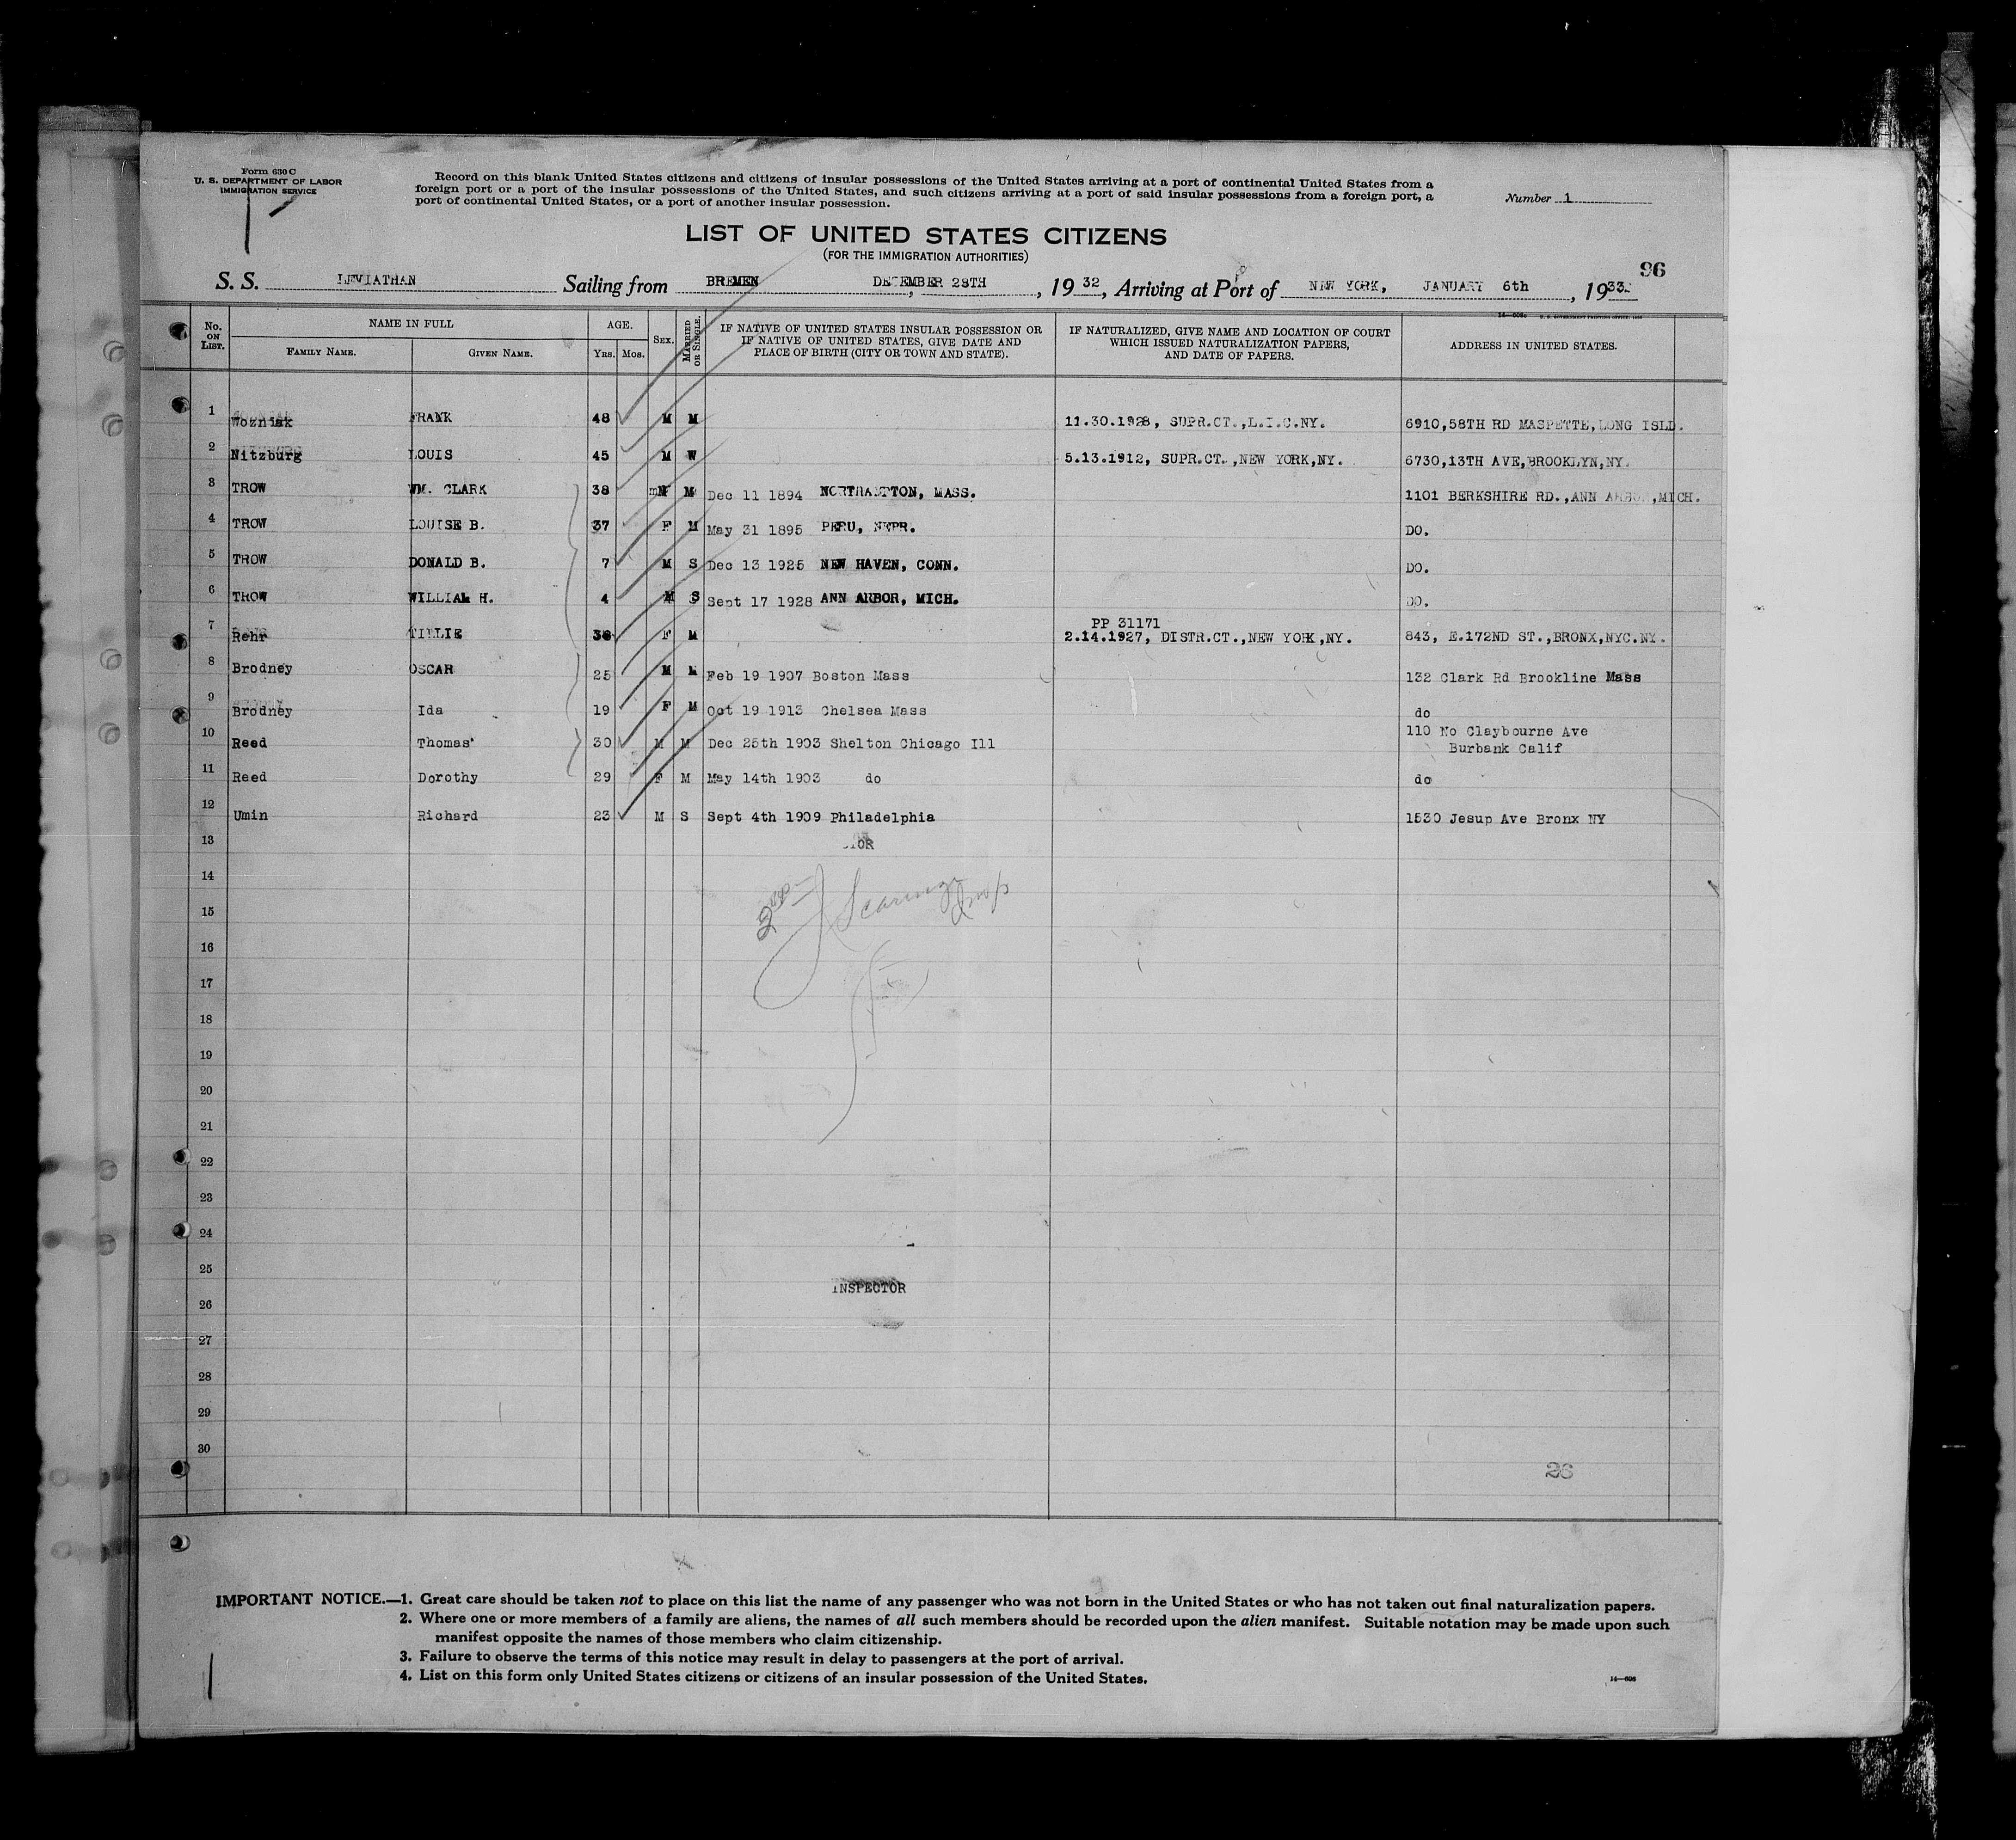 Form 630 C
U. S. DEPARTMENT OF LABOR
IMMIGRATION SERVICE
Record on this blank United States citizens and citizens of insular possessions of the United States arriving at a port of continental United States from a
foreign port or a port of the insular possessions of the United States, and such citizens arriving at a port of said insular possessions from a foreign port, a
port of continental United States, or a port of another insular possession.
Number 1
LIST OF UNITED STATES CITIZENS
(FOR THE IMMIGRATION AUTHORITIES)
96
S. S. LEVIATHAN Sailing from BREMEN, DECEMBER 28TH, 1932, Arriving at Port of NEW YORK, JANUARY 6th, 1933.
No. ON LIST. NAME IN FULL AGE. SEX. MARRIED OR SINGLE. IF NATIVE OF UNITED STATES INSULAR POSSESSION OR IF NATIVE OF UNITED STATES, GIVE DATE AND PLACE OF BIRTH (CITY OR TOWN AND STATE). IF NATURALIZED, GIVE NAME AND LOCATION OF COURT WHICH ISSUED NATURALIZATION PAPERS, AND DATE OF PAPERS. ADDRESS IN UNITED STATES.
FAMILY NAME. GIVEN NAME. YRS. MOS.
1 Wozniak FRANK 48 M M 11.30.1928, SUPR.CT.,L.I.C.NY. 6910,58TH RD MASPETTE,LONG ISLD.
2 Nitzburg LOUIS 45 M W 5.13.1912, SUPR.CT.,NEW YORK,NY. 6730,13TH AVE,BROOKLYN,NY.
3 TROW WM. CLARK 38 M M Dec 11 1894 NORTHAMPTON, MASS. 1101 BERKSHIRE RD.,ANN ARBOR,MICH.
4 TROW LOUISE B. 37 F M May 31 1895 PERU, NEBR. DO.
5 TROW DONALD B. 7 M S Dec 13 1925 NEW HAVEN, CONN. DO.
6 TROW WILLIAM H. 4 M S Sept 17 1928 ANN ARBOR, MICH. DO.
PP 31171
7 Rehr TILLIE 36 F M 2.14.1927, DISTR.CT.,NEW YORK,NY. 843, E.172ND ST.,BRONX,NYC.NY.
8 Brodney OSCAR 25 M M Feb 19 1907 Boston Mass 132 Clark Rd Brookline Mass
9 Brodney Ida 19 F M Oct 19 1913 Chelsea Mass do
10 Reed Thomas 30 M M Dec 25th 1903 Shelton Chicago Ill 110 No Claybourne Ave
Burbank Calif
11 Reed Dorothy 29 F M May 14th 1903 do do
12 Umin Richard 23 M S Sept 4th 1909 Philadelphia 1530 Jesup Ave Bronx NY
13
14
15
16
17
18
19
20
21
22
23
24
25
INSPECTOR
26
27
28
29
30
26
IMPORTANT NOTICE.—1. Great care should be taken not to place on this list the name of any passenger who was not born in the United States or who has not taken out final naturalization papers.
2. Where one or more members of a family are aliens, the names of all such members should be recorded upon the alien manifest. Suitable notation may be made upon such
manifest opposite the names of those members who claim citizenship.
3. Failure to observe the terms of this notice may result in delay to passengers at the port of arrival.
4. List on this form only United States citizens or citizens of an insular possession of the United States.